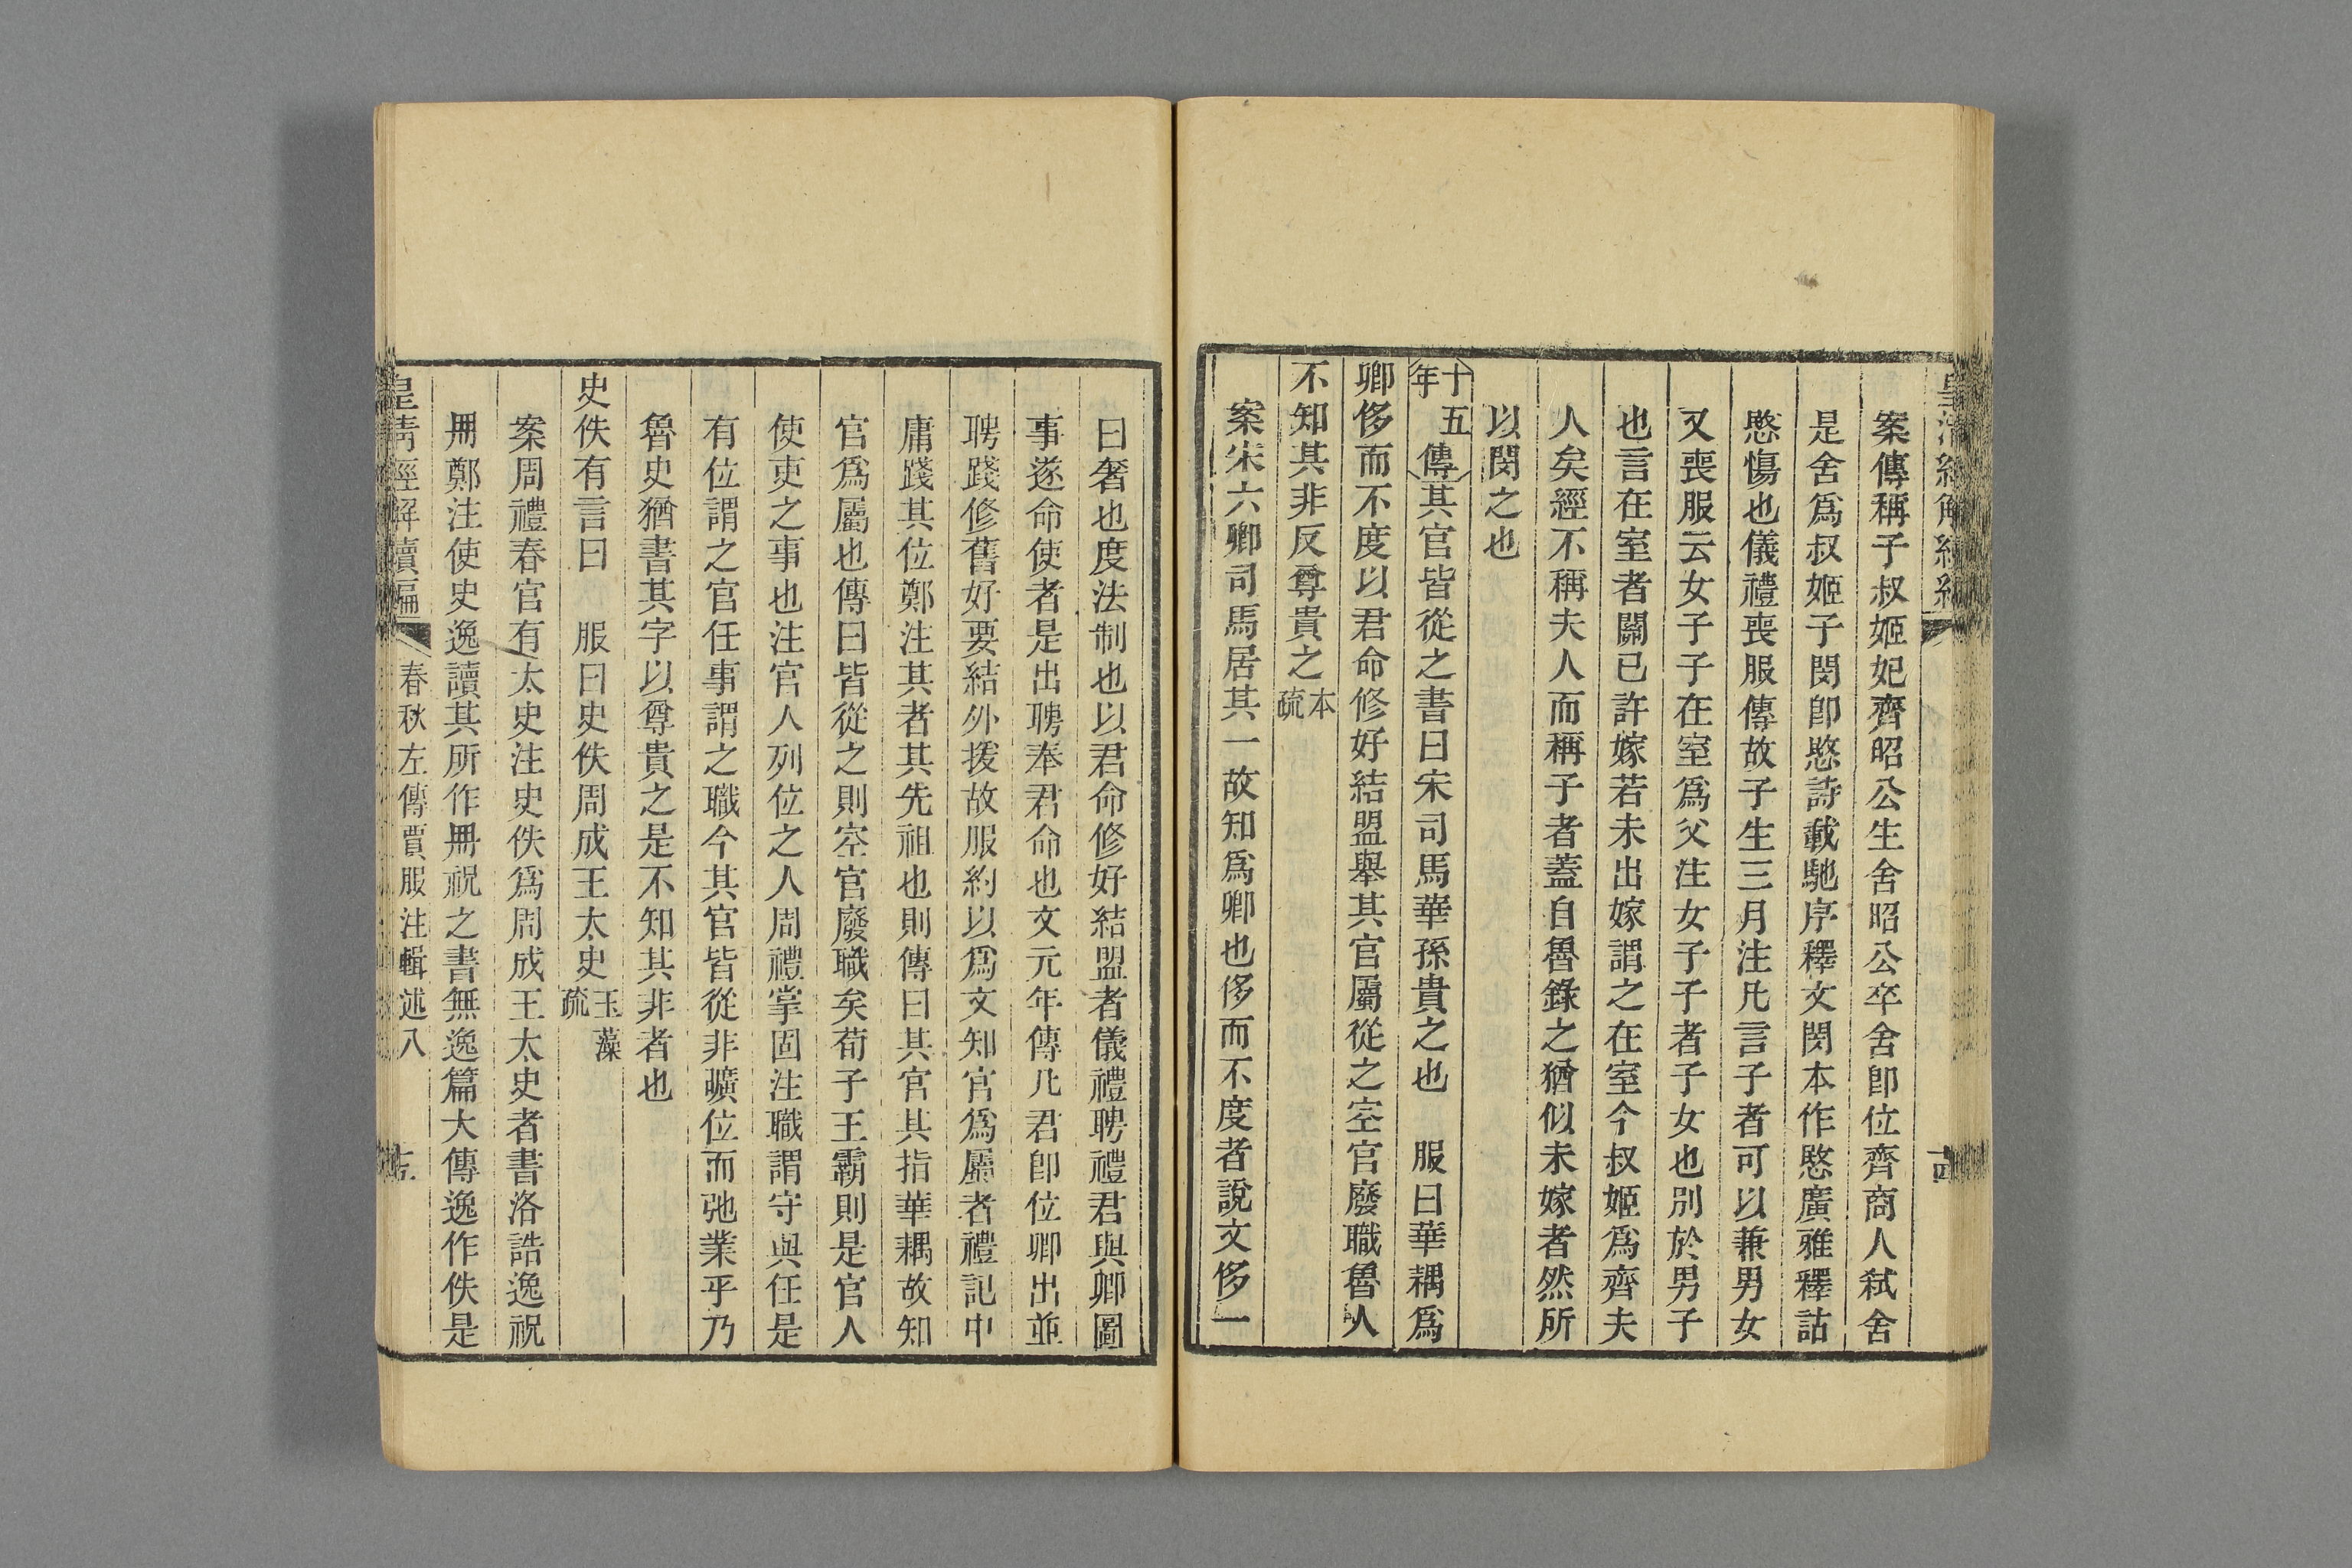 案傳稱子叔姬妃齊昭公生舍昭公卒舍卽位齊商人弒舍
是舍爲叔姬子閔卽愍詩載馳序釋文閔本作愍廣雅釋詁
愍傷也儀禮喪服傳故子生三月注凡言子者可以兼男女
又喪服云女子子在室爲父注女子子者子女也別於男子
也言在室者關已許嫁若未出嫁謂之在室今叔姬爲齊夫
人矣經不稱夫人而稱子者蓋自魯錄之猶似未嫁者然所
以閔之也
十五年傳其官皆從之書曰宋司馬華孫貴之也 服曰華耦爲
卿侈而不度以君命修好結盟舉其官屬從之空官廢職魯人
不知其非反尊貴之本疏
案宋六卿司馬居其一故知爲卿也侈而不度者說文侈一
曰奢也度法制也以君命修好結盟者儀禮聘禮君與卿圖
事遂命使者是出聘奉君命也文元年傳凡君卽位卿出並
聘踐修舊好要結外援故服約以爲文知官爲屬者禮記中
庸踐其位鄭注其者其先祖也則傳曰其官其指華耦故知
官爲屬也傳曰皆從之則空官廢職矣荀子王霸則是官人
使吏之事也注官人列位之人周禮掌固注職謂守與任是
有位謂之官任事謂之職今其官皆從非曠位而弛業乎乃
魯史猶書其字以尊貴之是不知其非者也
史佚有言曰 服曰史佚周成王太史玉藻疏
案周禮春官有太史注史佚爲周成王太史者書洛誥逸祝
冊鄭注使史逸讀其所作冊祝之書無逸篇大傳逸作佚是
皇清經解續編 春秋左傳賈服注輯述八